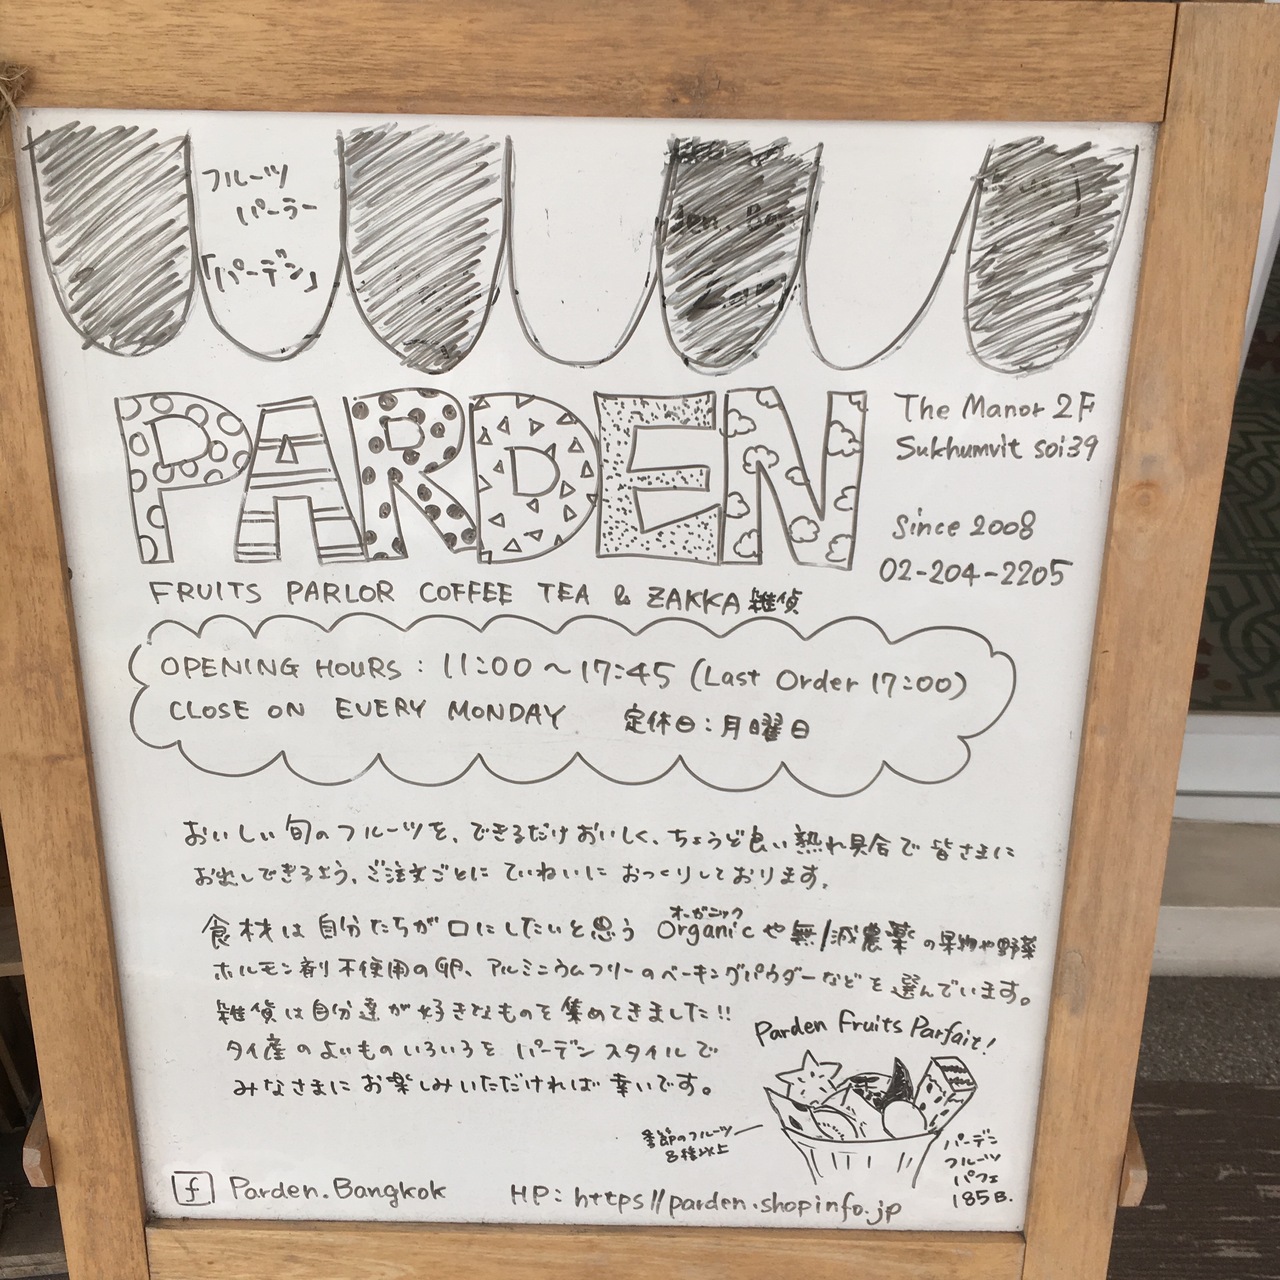 フルーツ
パーラー
「パーデン」
PARDEN
The Manor 2F
Sukhumvit soi39
Since 2008
02-204-2205
FRUITS PARLOR COFFEE TEA & ZAKKA 雑貨
OPENING HOURS : 11:00～17:45 (Last Order 17:00)
CLOSE ON EVERY MONDAY 定休日：月曜日
おいしい旬のフルーツを、できるだけおいしく、ちょうど良い熟れ具合で皆さまに
お出しできるよう、ご注文ごとにていねいにおつくりしております。
オーガニック
食材は自分たちが口にしたいと思う Organicや無/減農薬の果物や野菜
ホルモン剤不使用の卵、アルミニウムフリーのベーキングパウダーなどを選んでいます。
雑貨は自分達が好きなものを集めてきました!!
タイ産のよいものいろいろをパーデンスタイルで
みなさまにお楽しみいただければ幸いです。
Parden Fruits Parfait!
季節のフルーツ
8種以上
パーデン
フルーツ
パフェ
185B.
f Parden.Bangkok
HP: https//parden.shopinfo.jp